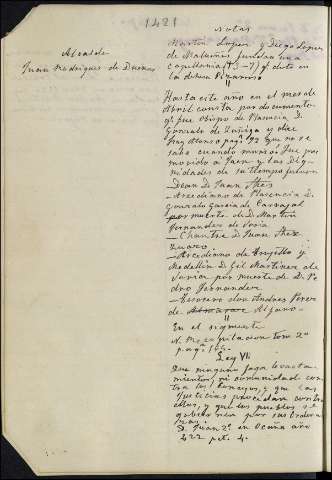 1421
Notas
Alcalde
Juan Rodriguez de Duenas
Martin Lopez y Diego Lopez
de fundan una
Capellania (T. 3-7) qe dice en
la
"
Hasta este año en el mes de
Abril consta por documento
qe fue obispo de Plasencia D.
Gonzalo de Zuñiga y dice
Fray Alonso pag. 92 que no se
sabe cuando murió fue pro
movido á Jaen y las Dig-
nidades de su tiempo fueron
- Dean D. Juan Thes
- Arcediano de Plasencia D.
Gonzalo Garcia de Carvajal
por muerte de D. Martin
Fernandez de Soria
- Chantre D. Juan Fhez
- Arcediano de Trujillo y
Medellin D. Gil Martinez de
Soria por muerte de D. Pe
dro Fernandez
- Tesorero don Andres Perez
de Alfaro -
"
En el siguiente
N. Recopilacion tom 2º
pag.
Ley VII
Que ninguno faga levanta-
mientos, ni comunidad con-
tra los Concejos, y que las
Justicias procedan contra
ellos, y que los pueblos se
gobiernen por sus Ordenan
zas.
D. Juan 2º en Ocaña año
422 pet. 4.